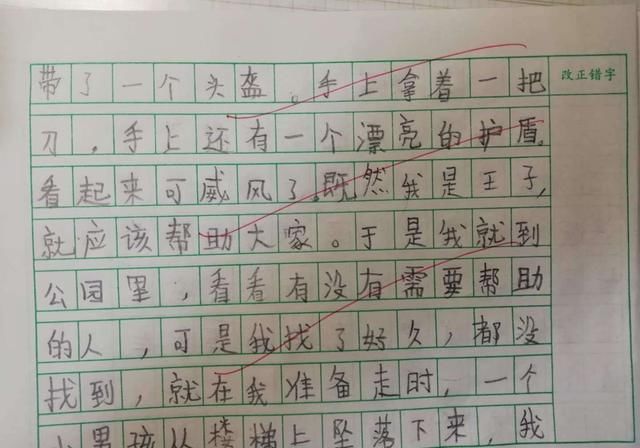 带了一个头盔。手上拿着一把
改正错字
刀，手上还有一个漂亮的护盾，
看起来可威风了，既然我是王子，
就应该帮助大家。于是我就到
公园里，看看有没有需要帮助
的人，可是我找了好久，都没
找到，就在我准备走时，一个
小男孩从楼梯上坠落下来，我